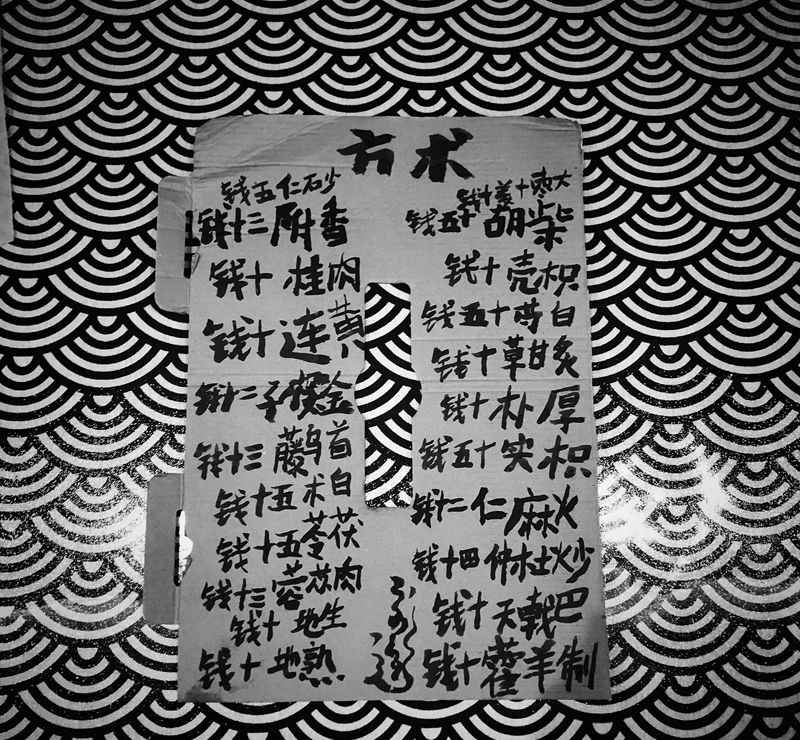 术方
柴胡十五钱
枳壳十钱
白芍十五钱
炙甘草十钱
厚朴十钱
枳实十五钱
火麻仁二十钱
炒杜仲四十钱
巴戟天十钱
制羊藿十钱
砂仁五钱
香附二十钱
肉桂十钱
黄连十钱
金樱子二十钱
首乌藤三十钱
白术五十钱
茯苓五十钱
肉苁蓉三十钱
生地十钱
熟地十钱